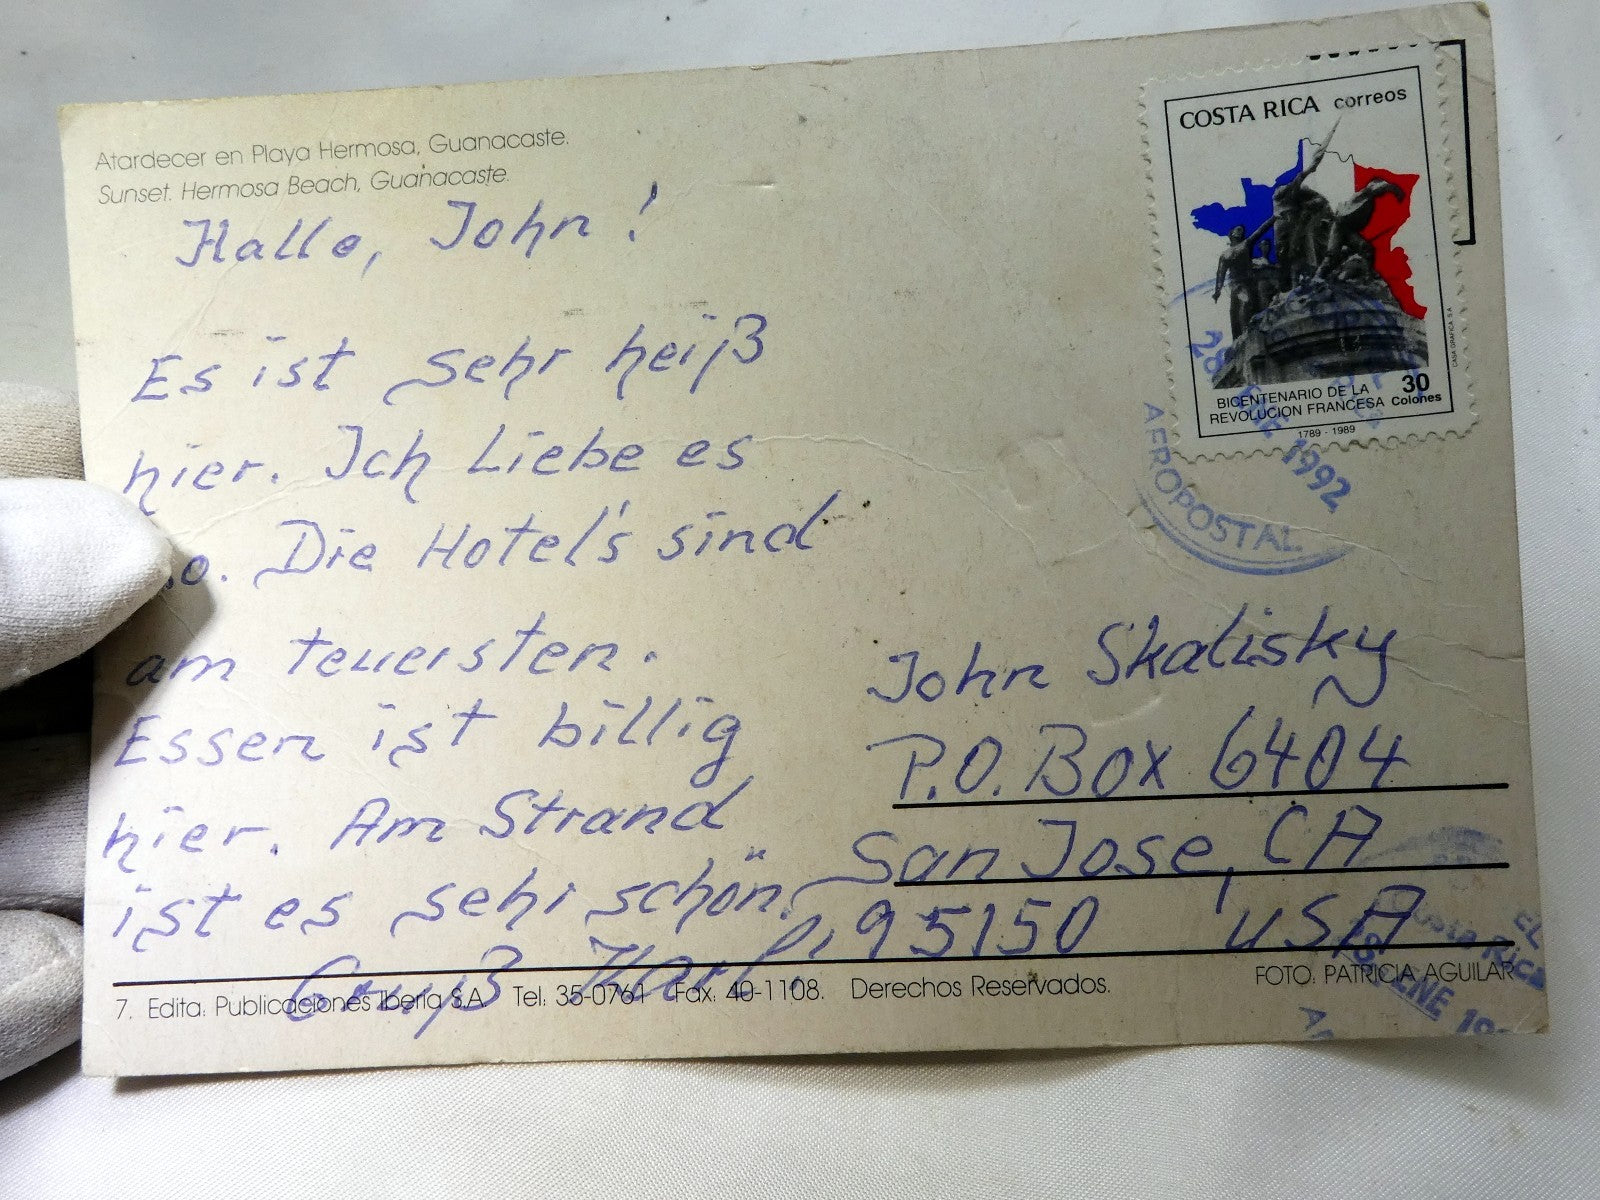 Atardecer en Playa Hermosa, Guanacaste.
Sunset. Hermosa Beach, Guanacaste.
Hallo, John!
Es ist sehr heiß
hier. Ich Liebe es
o. Die Hotel's sind
am teuersten.
Essen ist billig
hier. Am Strand
ist es sehr schön.
Gruß Karl
COSTA RICA correos
BICENTENARIO DE LA
REVOLUCION FRANCESA
30
Colones
1789 - 1989
CASA GRAFICA S A
28 ENE 1992
AEROPOSTAL
John Skalisky
P.O. Box 6404
San Jose, CA
95150 USA
7. Edita: Publicaciones Iberia S.A. Tel: 35-0761 Fax: 40-1108. Derechos Reservados.
FOTO: PATRICIA AGUILAR
Costa Rica
28 ENE 19